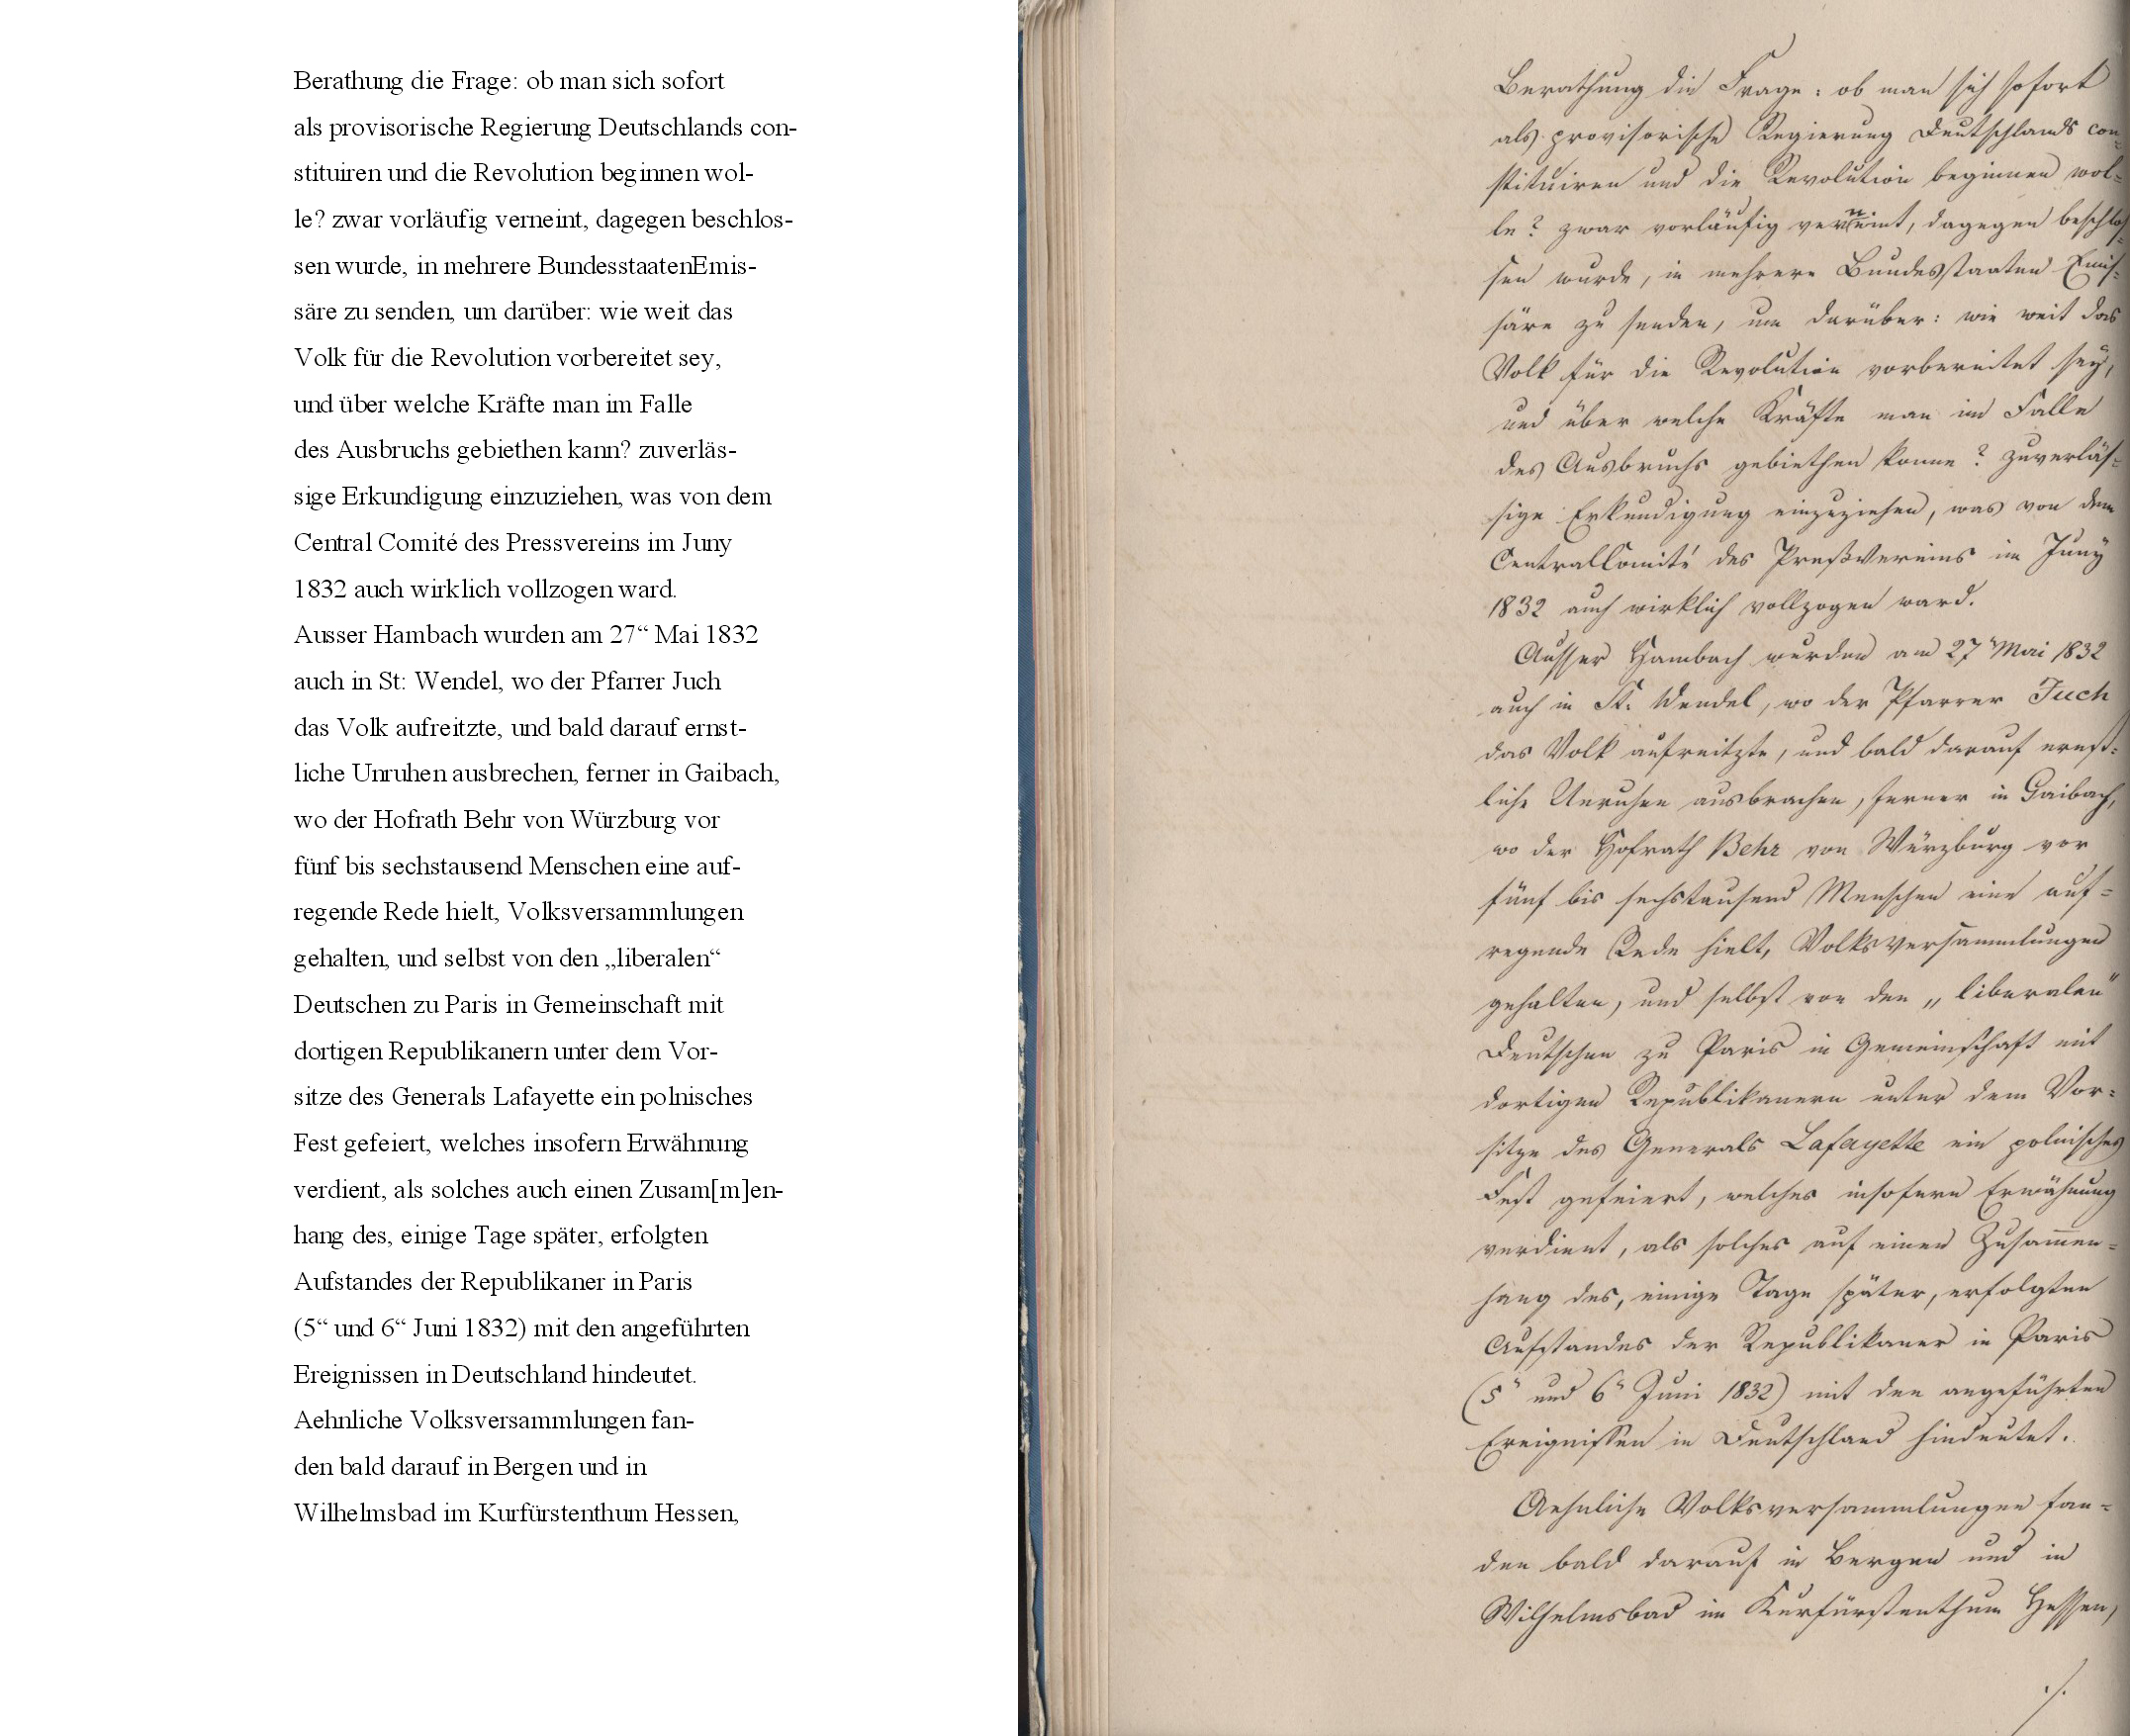 Berathung die Frage: ob man sich sofort
als provisorische Regierung Deutschlands con-
stituiren und die Revolution beginnen wol-
le? zwar vorläufig verneint, dagegen beschlos-
sen wurde, in mehrere BundesstaatenEmis-
säre zu senden, um darüber: wie weit das
Volk für die Revolution vorbereitet sey,
und über welche Kräfte man im Falle
des Ausbruchs gebiethen kann? zuverläs-
sige Erkundigung einzuziehen, was von dem
Central Comité des Pressvereins im Juny
1832 auch wirklich vollzogen ward.
Ausser Hambach wurden am 27“ Mai 1832
auch in St: Wendel, wo der Pfarrer Juch
das Volk aufreitzte, und bald darauf ernst-
liche Unruhen ausbrechen, ferner in Gaibach,
wo der Hofrath Behr von Würzburg vor
fünf bis sechstausend Menschen eine auf-
regende Rede hielt, Volksversammlungen
gehalten, und selbst von den „liberalen“
Deutschen zu Paris in Gemeinschaft mit
dortigen Republikanern unter dem Vor-
sitze des Generals Lafayette ein polnisches
Fest gefeiert, welches insofern Erwähnung
verdient, als solches auch einen Zusam[m]en-
hang des, einige Tage später, erfolgten
Aufstandes der Republikaner in Paris
(5“ und 6“ Juni 1832) mit den angeführten
Ereignissen in Deutschland hindeutet.
Aehnliche Volksversammlungen fan-
den bald darauf in Bergen und in
Wilhelmsbad im Kurfürstenthum Hessen,
Berathung die Frage: ob man sich sofort
als provisorische Regierung Deutschlands con=
stituiren und die Revolution beginnen wol=
le? zwar vorläufig verneint, dagegen beschlos=
sen wurde, in mehrere Bundesstaaten Emis=
säre zu senden, um darüber: wie weit das
Volk für die Revolution vorbereitet sey,
und über welche Kräfte man im Falle
des Ausbruchs gebiethen könne? zuverläs=
sige Erkundigung einzuziehen, was von dem
CentralComité des Preßvereins im Juny
1832 auch wirklich vollzogen ward.
Ausser Hambach wurden am 27" Mai 1832
auch in St: Wendel, wo der Pfarrer Juch
das Volk aufreitzte, und bald darauf ernst=
liche Unruhen ausbrachen, ferner in Gaibach,
wo der Hofrath Behr von Würzburg vor
fünf bis sechstausend Menschen eine auf=
regende Rede hielt, Volksversammlungen
gehalten, und selbst von den „liberalen"
Deutschen zu Paris in Gemeinschaft mit
dortigen Republikanern unter dem Vor=
sitze des Generals Lafayette ein polnisches
Fest gefeiert, welches insofern Erwähnung
verdient, als solches auf einen Zusam̅en=
hang des, einige Tage später, erfolgten
Aufstandes der Republikaner in Paris
(5" und 6" Juni 1832) mit den angeführten
Ereignissen in Deutschland hindeutet.
Aehnliche Volksversammlungen fan=
den bald darauf in Bergen und in
Wilhelmsbad im Kurfürstenthum Hessen,
./.